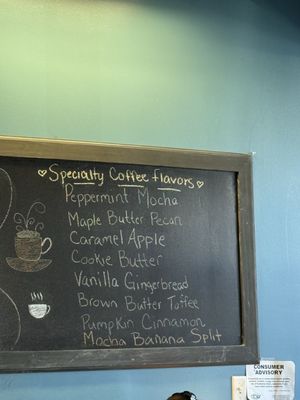 Specialty Coffee Flavors
Peppermint Mocha
Maple Butter Pecan
Caramel Apple
Cookie Butter
Vanilla Gingerbread
Brown Butter Toffee
Pumpkin Cinnamon
Mocha Banana Split
CONSUMER
ADVISORY